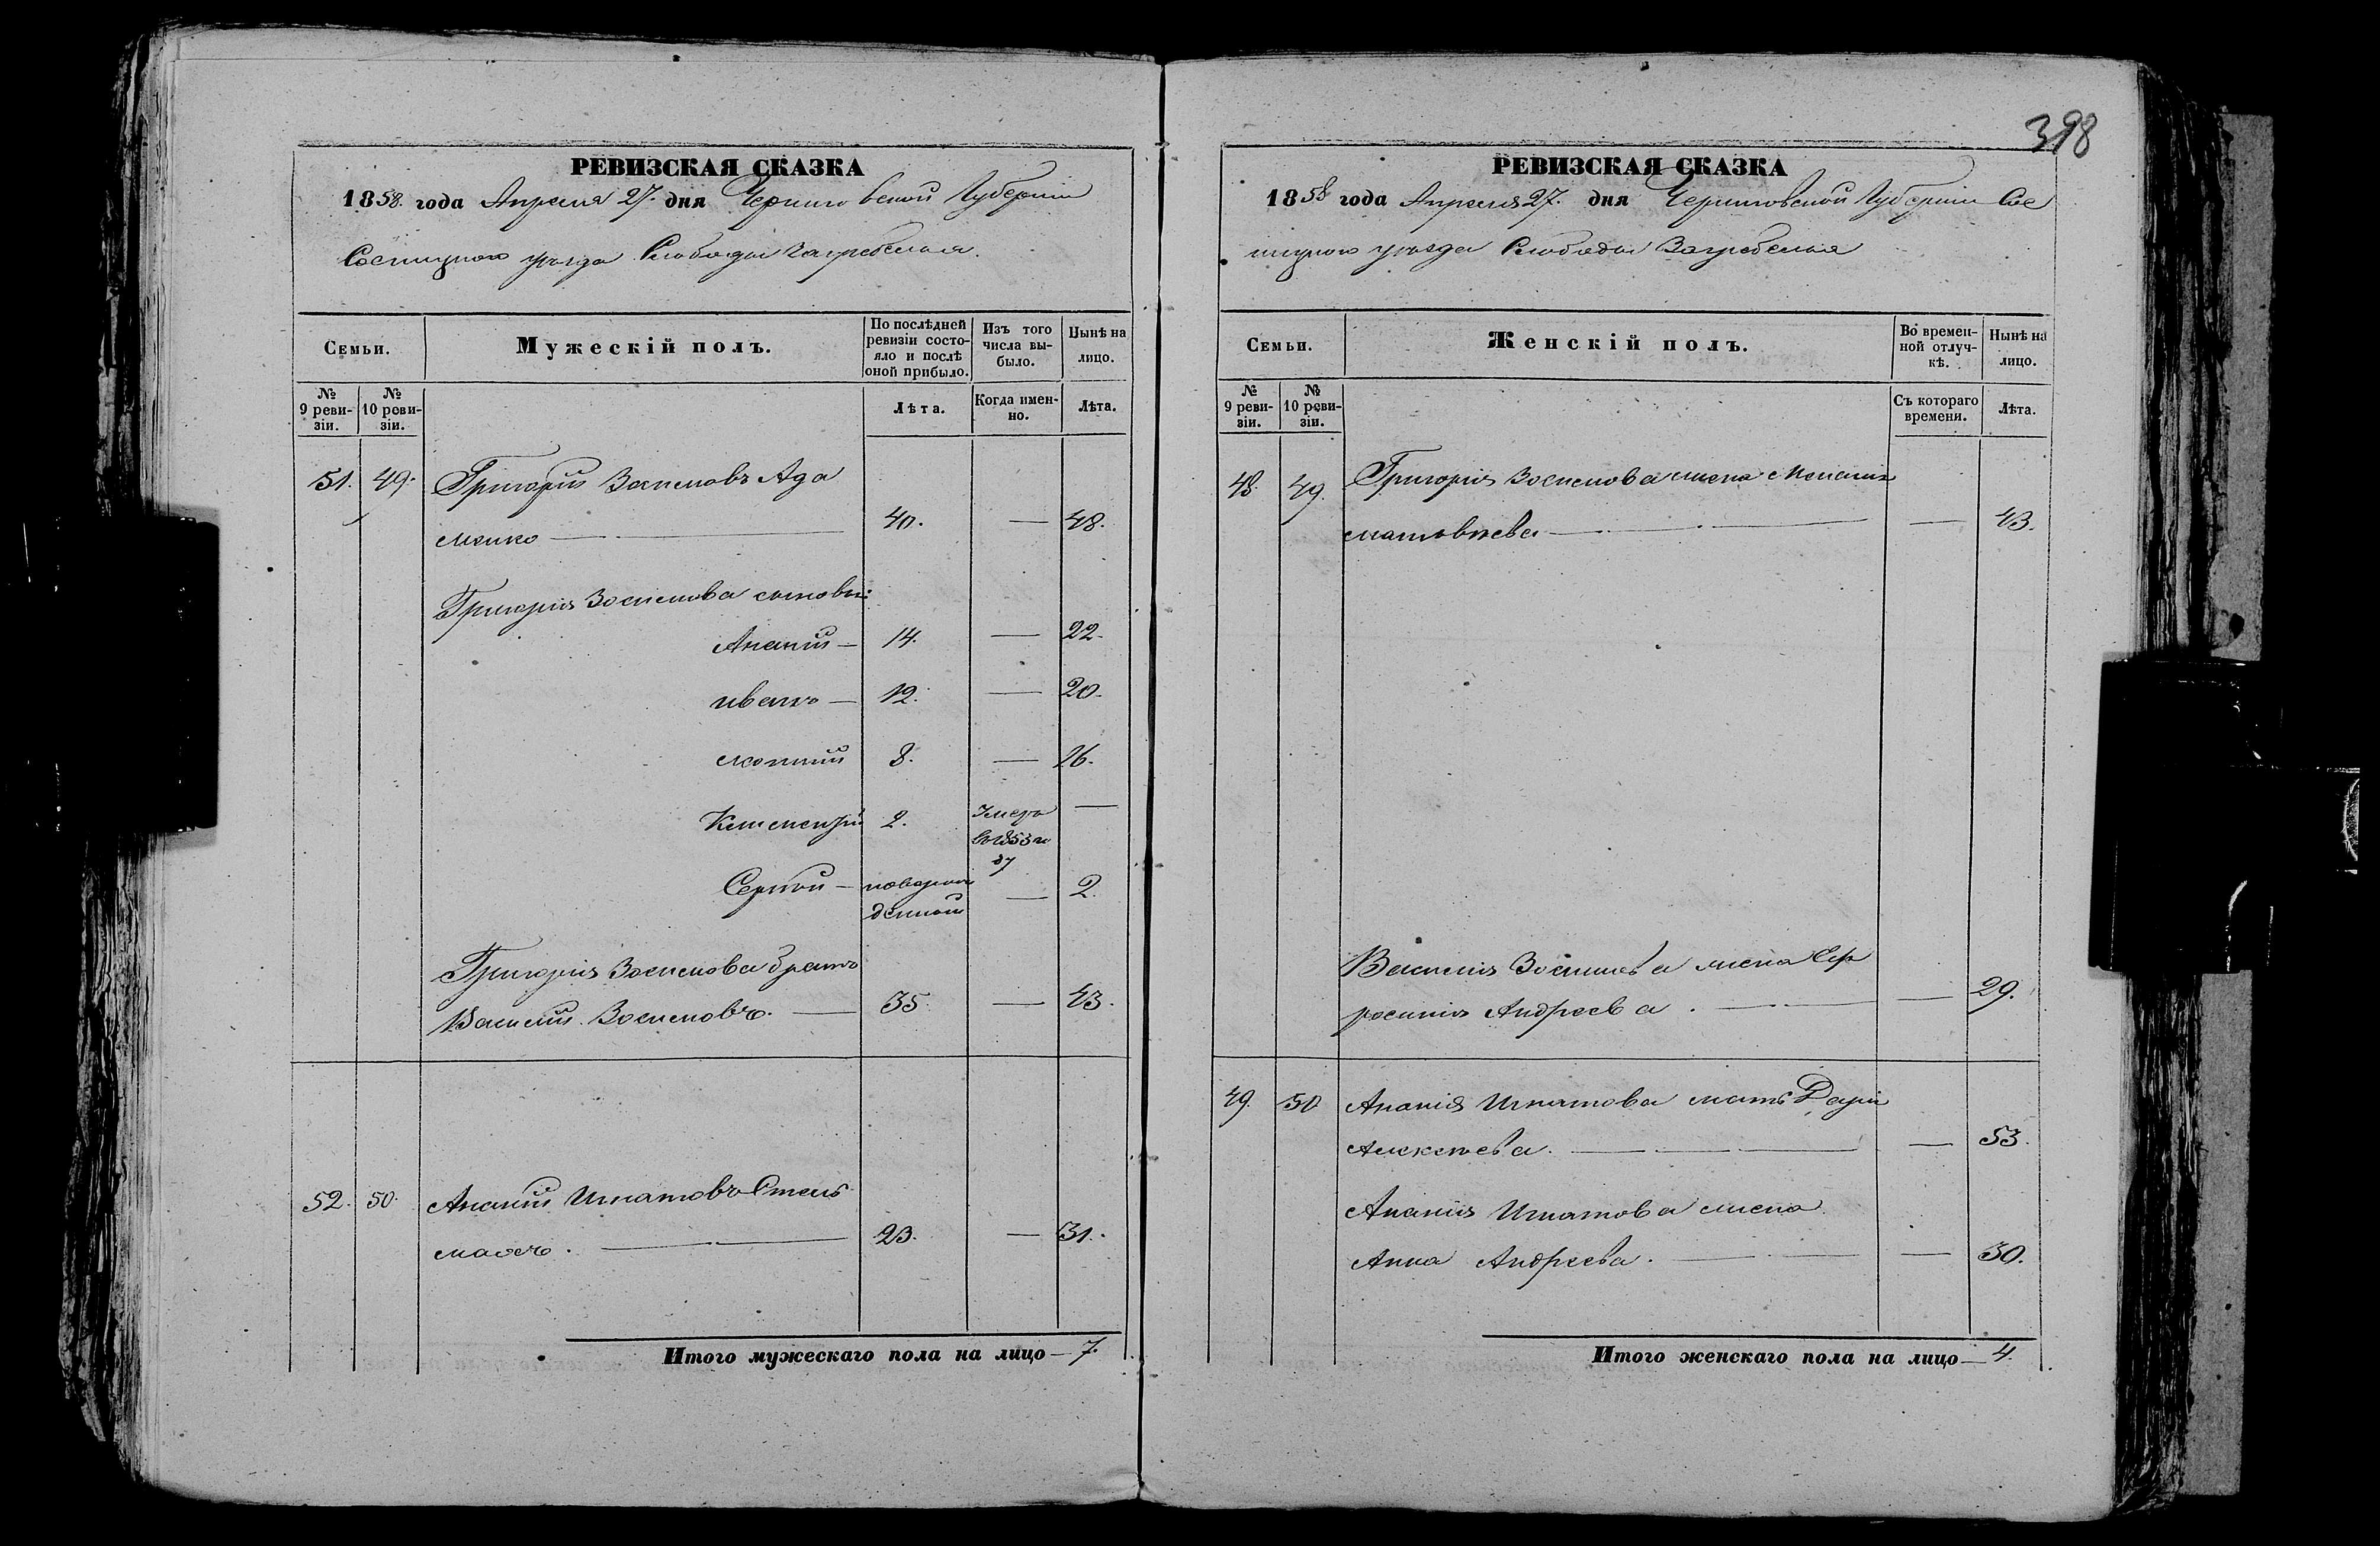 398
РЕВИЗСКАЯ СКАЗКА
1858. года Апреля 27. дня Черниговской Губернии
Сосницкого уезда Слободы Загребелья.
Семьи.
Мужескій полъ.
По послѣдней ревизіи состояло и послѣ оной прибыло.
Изъ того числа выбыло.
Нынѣ на лицо.
№ 9 ревизіи.
№ 10 ревизіи.
Лѣта.
Когда именно.
Лѣта.
51. 49. Григорій Зосимовъ Ада
менко — 40. — 48.
Григорія Зосимова сыновья:
Ананій — 14. — 22.
Иванъ — 12. — 20.
8. — 16.
2. Умеръ —
въ 1853 го
ду
Сергѣй — новорож
денный — 2.
Григорія Зосимова братъ
Василій Зосимовъ. — 35 — 43.
52. 50. Ананій Игнатовъ Стель
махъ. — 23. — 31.
Итого мужескаго пола на лицо — 7.
РЕВИЗСКАЯ СКАЗКА
1858 года Апреля 27. дня Черниговской Губерніи Сос
ницкого уезда Слободы Загребелья
Семьи.
Женскій полъ.
Во временной отлучкѣ.
Нынѣ на лицо.
№ 9 ревизіи.
№ 10 ревизіи.
Съ котораго времени.
Лѣта.
48. 49. Григорія Зосимова жена Меланія
Матвѣева — — 43.
Василія Зосимова жена Еф
росинія Андреева. — — 29.
49. 50 Ананія Игнатова мать Дарія
Алексѣева. — — 53.
Ананія Игнатова жена
Анна Андреева. — — 30.
Итого женскаго пола на лицо — 4.